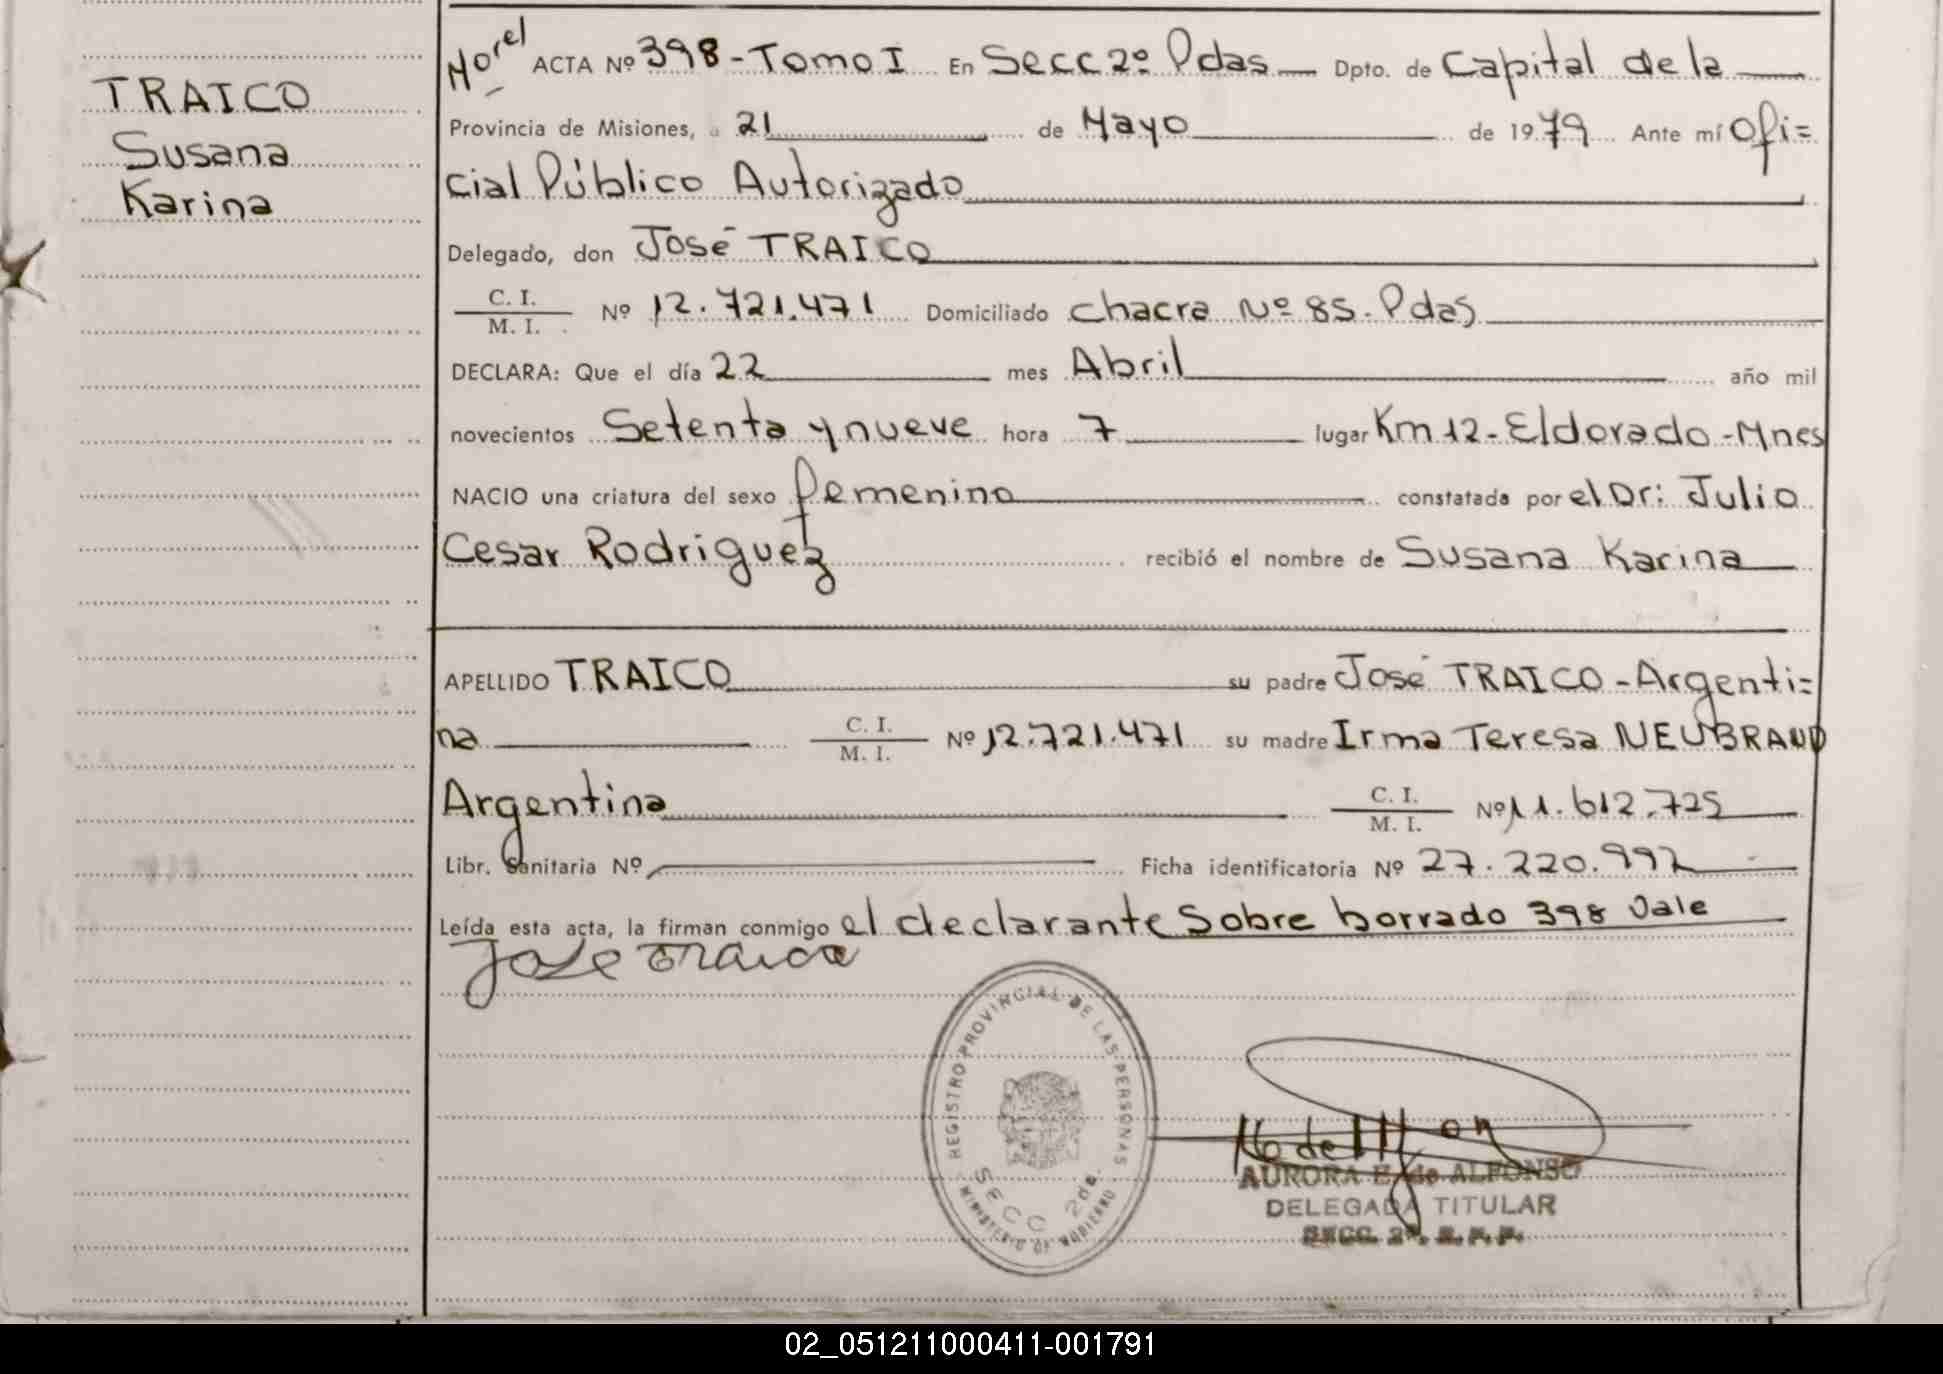 TRAICO
Susana
Karina
ACTA Nº 398 - Tomo I En Secc 2º Pdas Dpto. de Capital de la
Provincia de Misiones, a 21 de Mayo de 1979 Ante mí Ofi=
cial Público Autorizado
Delegado, don José TRAICO
C. I.
M. I. Nº 12.721.471 Domiciliado Chacra Nº 85. Pdas
DECLARA: Que el día 22 mes Abril año mil
novecientos Setenta y nueve hora 7 lugar Km 12 - Eldorado - Mnes
NACIO una criatura del sexo femenino constatada por el Dr: Julio
Cesar Rodriguez recibió el nombre de Susana Karina
APELLIDO TRAICO su padre José TRAICO - Argenti=
na C. I.
M. I. Nº 12.721.471 su madre Irma Teresa NEUBRAND
Argentina C. I.
M. I. Nº 11.612.725
Libr. Sanitaria Nº Ficha identificatoria Nº 27.220.992
Leída esta acta, la firman conmigo el declarante Sobre borrado 398 Vale
Jose Traico
REGISTRO PROVINCIAL DE LAS PERSONAS
SECC 2da.
MINISTERIO DE GOBIERNO
AURORA E. de ALFONSO
DELEGADA TITULAR
SECC. 2ª. R. P. P.
02_051211000411-001791